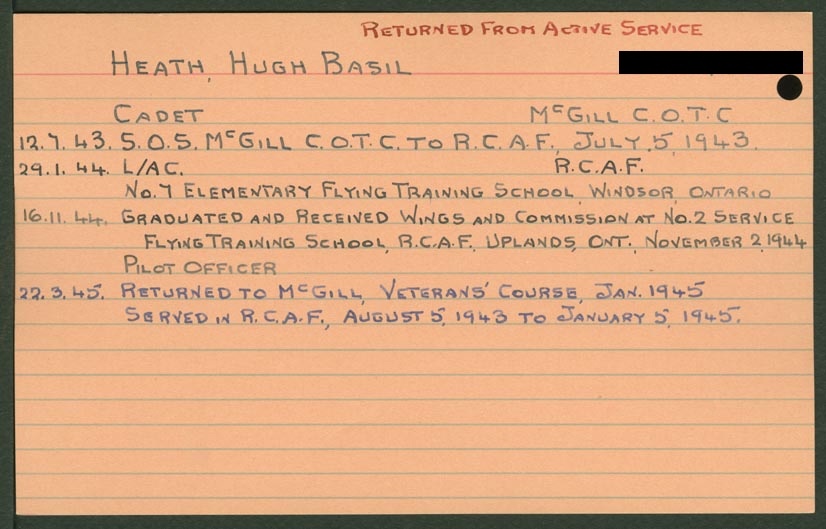 RETURNED FROM ACTIVE SERVICE
HEATH, HUGH BASIL
CADET McGILL C.O.T.C
12.7.43. S.O.S. McGILL C.O.T.C. TO R.C.A.F., JULY 5, 1943.
29.1.44. L/AC. R.C.A.F.
No.7 ELEMENTARY FLYING TRAINING SCHOOL, WINDSOR, ONTARIO
16.11.44. GRADUATED AND RECEIVED WINGS AND COMMISSION AT No.2 SERVICE
FLYING TRAINING SCHOOL, R.C.A.F., UPLANDS, ONT., NOVEMBER 2, 1944
PILOT OFFICER
22.3.45. RETURNED TO McGILL, VETERANS' COURSE, JAN. 1945
SERVED IN R.C.A.F., AUGUST 5, 1943 TO JANUARY 5, 1945.